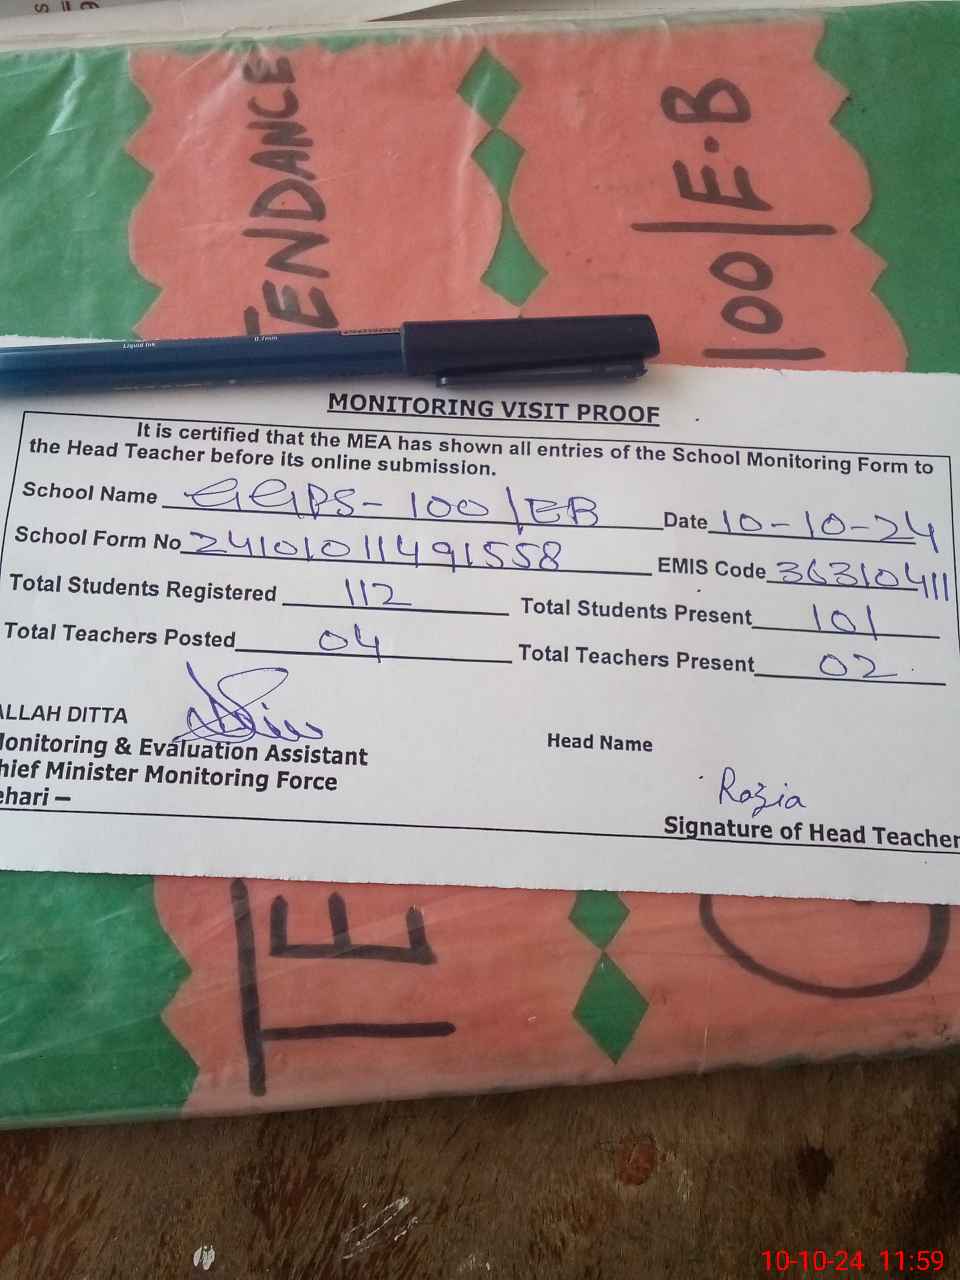 TENDANCE
100/E.B
Liquid Ink 0.7mm
MONITORING VISIT PROOF
It is certified that the MEA has shown all entries of the School Monitoring Form to
the Head Teacher before its online submission.
School Name GGPS-100/EB Date 10-10-24
School Form No 24101011491558 EMIS Code 36310411
Total Students Registered 112 Total Students Present 101
Total Teachers Posted 04 Total Teachers Present 02
ALLAH DITTA
Monitoring & Evaluation Assistant Head Name
Chief Minister Monitoring Force
ehari –
Razia
Signature of Head Teacher
TE
10-10-24 11:59